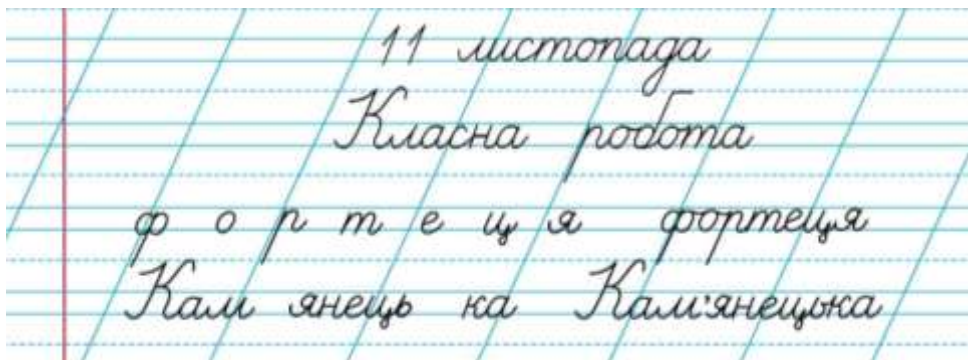 11 листопада
Класна робота
ф о р т е ц я фортеця
Кам янець ка Кам'янецька